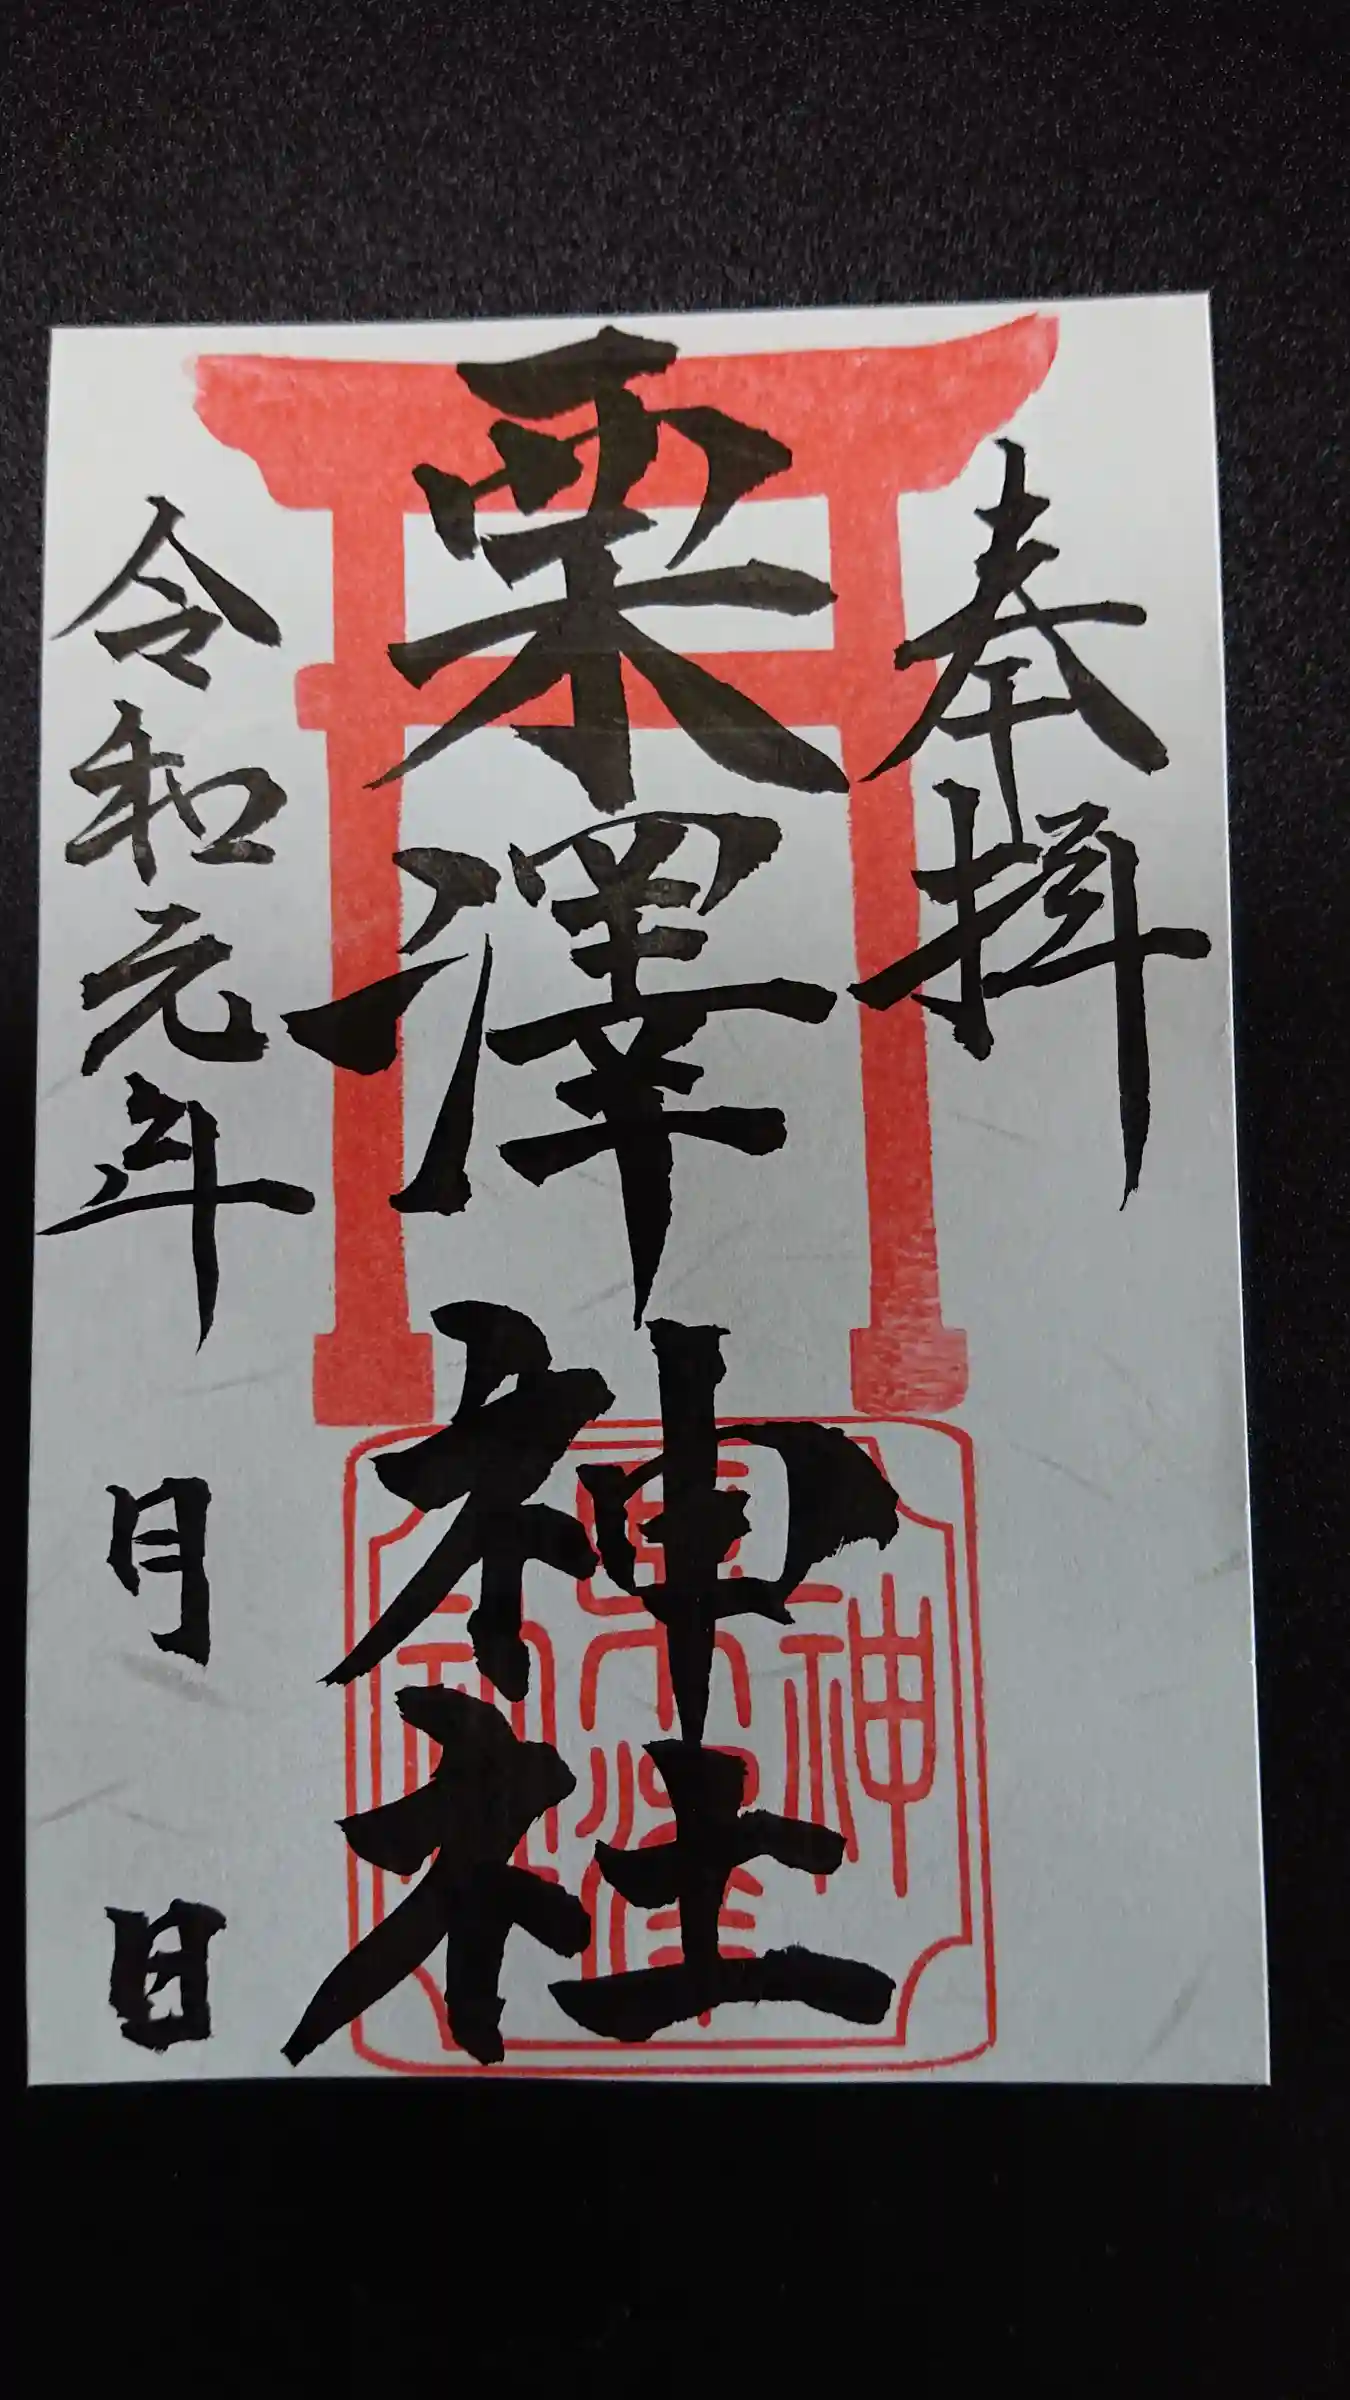 奉拝
栗澤神社
令和元年 月 日
神
栗澤
社